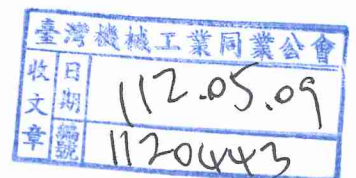 臺灣機械工業同業公會
收文章
日期 112.05.09
編號 1120443